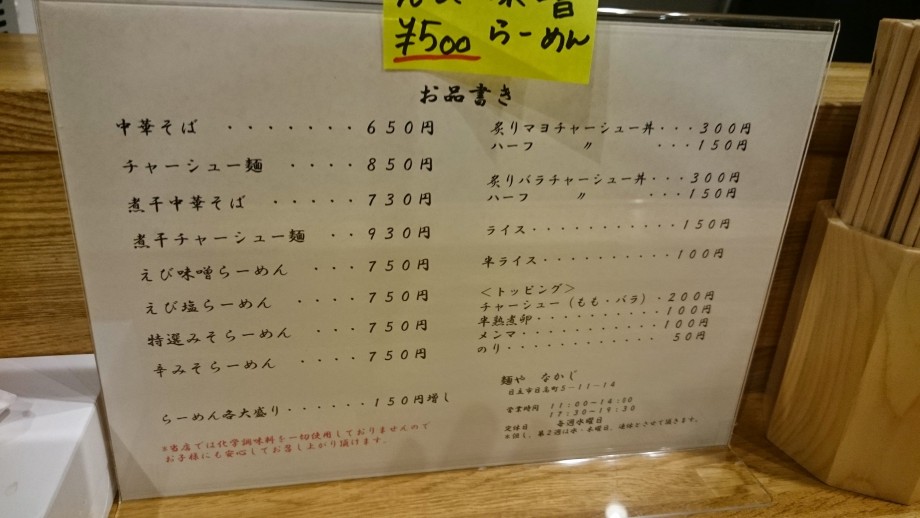 味噌
¥500 らーめん
お品書き
中華そば ・・・・・・・650円
チャーシュー麺 ・・・・850円
煮干中華そば ・・・・・730円
煮干チャーシュー麺 ・・930円
えび味噌らーめん ・・・750円
えび塩らーめん ・・・・750円
特選みそらーめん ・・・・750円
辛みそらーめん ・・・・・750円
らーめん各大盛り・・・・・・150円増し
※当店では化学調味料を一切使用しておりませんので
お子様にも安心してお召し上がり頂けます。
炙りマヨチャーシュー丼・・・300円
ハーフ 〃 ・・・150円
炙りバラチャーシュー丼・・・300円
ハーフ 〃 ・・・150円
ライス・・・・・・・・・・・150円
半ライス・・・・・・・・・・100円
＜トッピング＞
チャーシュー（もも・バラ）・200円
半熟煮卵・・・・・・・・・・100円
メンマ・・・・・・・・・・・100円
のり・・・・・・・・・・・・50円
麺や なかじ
日立市日高町5－11－14
営業時間 11:00～14:00
17:30～19:30
定休日 毎週水曜日
※但し、第2週は水・木曜日、連休とさせて頂きます。